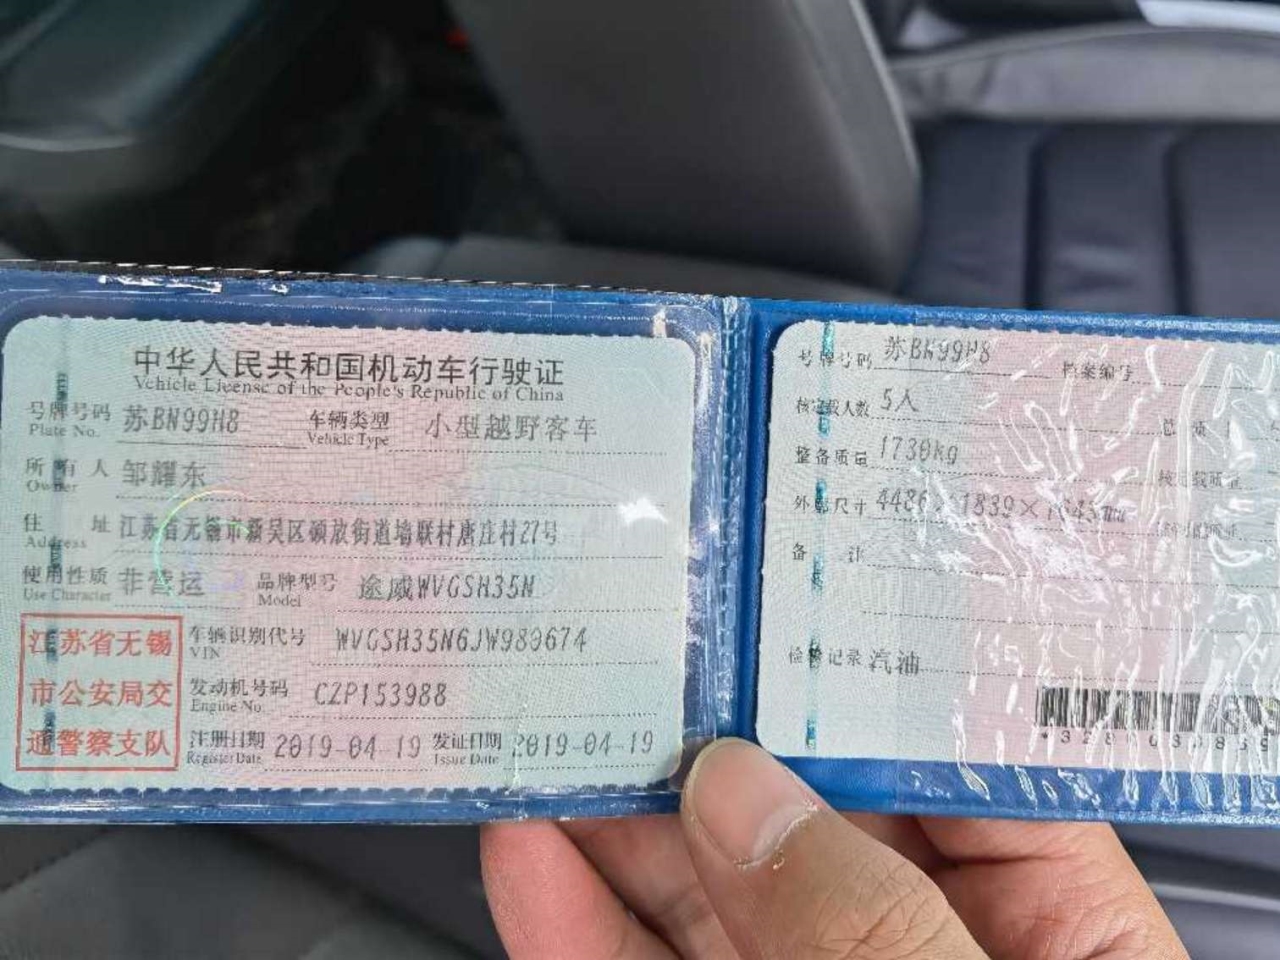 中华人民共和国机动车行驶证
Vehicle License of the People's Republic of China
号牌号码 苏BN99H8 车辆类型 小型越野客车
Plate No. Vehicle Type
所有人 邹耀东
Owner
住址 江苏省无锡市新吴区硕放街道墙联村唐庄村27号
Address
使用性质 非营运 品牌型号 途威WVGSH35N
Use Character Model
车辆识别代号 WVGSH35N6JW980674
VIN
发动机号码 CZP153988
Engine No.
注册日期 2019-04-19 发证日期 2019-04-19
Register Date Issue Date
江苏省无锡
市公安局交
通警察支队
号牌号码 苏BN99H8 档案编号
核定载人数 5人
整备质量 1730kg
核定载质量
外廓尺寸 1839×
备注
检验记录 汽油